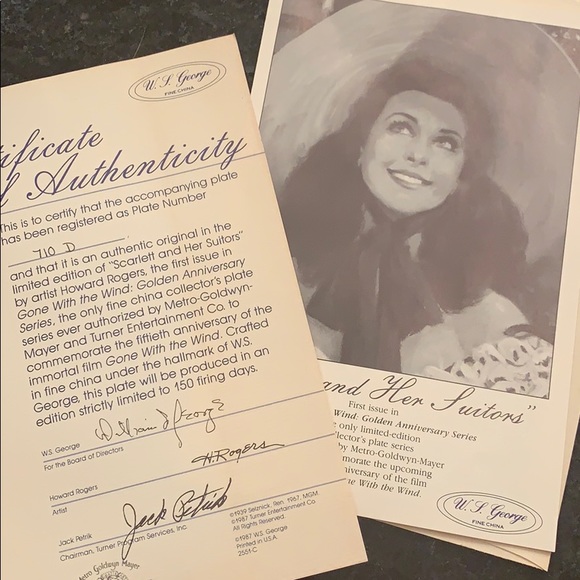 W. S. George
FINE CHINA
tificate
Authenticity
This is to certify that the accompanying plate
has been registered as Plate Number
710 D
and that it is an authentic original in the
limited edition of "Scarlett and Her Suitors"
by artist Howard Rogers, the first issue in
Gone With the Wind: Golden Anniversary
Series, the only fine china collector's plate
series ever authorized by Metro-Goldwyn-
Mayer and Turner Entertainment Co. to
commemorate the fiftieth anniversary of the
immortal film Gone With the Wind. Crafted
in fine china under the hallmark of W.S.
George, this plate will be produced in an
edition strictly limited to 150 firing days.
William S George
W.S. George
For the Board of Directors
H. Rogers
Howard Rogers
Artist
Jack Petrik
Jack Petrik
Chairman, Turner Program Services, Inc.
©1939 Selznick. Ren. 1967, MGM.
©1987 Turner Entertainment Co.
All Rights Reserved.
©1987 W.S. George
Printed in U.S.A.
2551-C
Metro Goldwyn Mayer
and Her Suitors"
First issue in
Wind: Golden Anniversary Series
only limited-edition
lector's plate series
by Metro-Goldwyn-Mayer
morate the upcoming
niversary of the film
ne With the Wind.
W. S. George
FINE CHINA